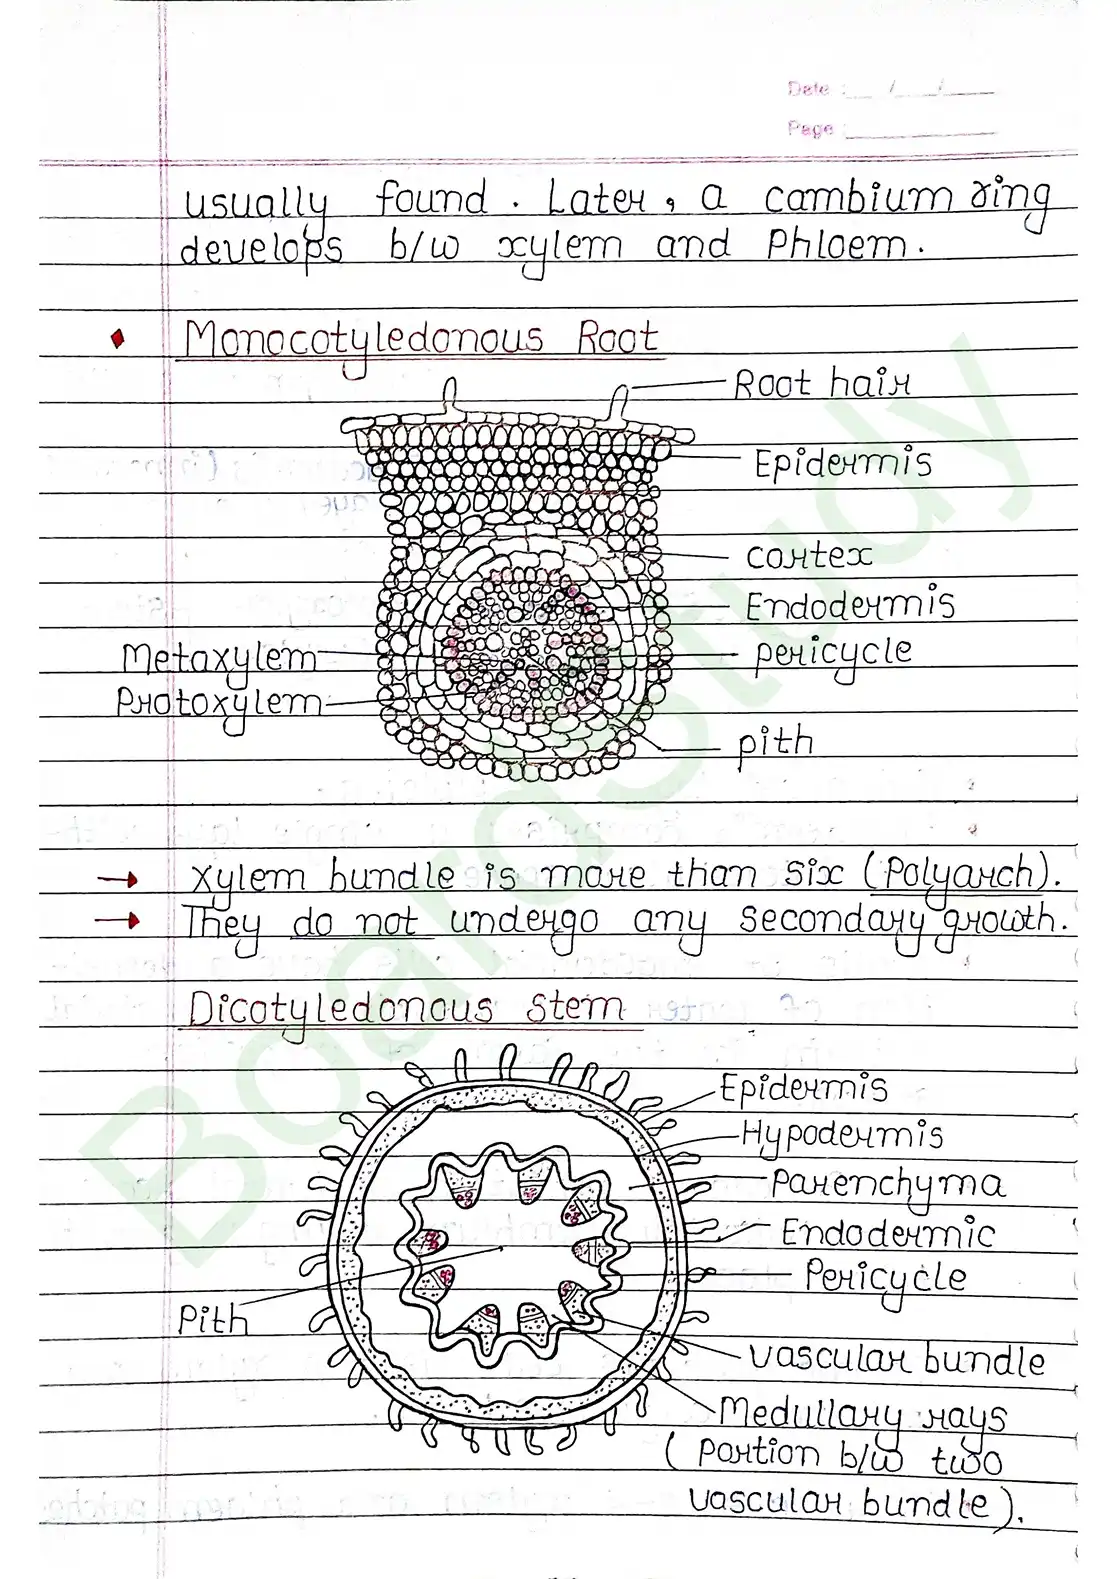 Date : __/__/__
Page : ____
usually found. Later, a cambium ring
develops b/w xylem and Phloem.
Monocotyledonous Root
Root hair
Epidermis
cortex
Endodermis
Metaxylem
pericycle
Protoxylem
pith
→ Xylem bundle is more than six (Polyarch).
→ They do not undergo any secondary growth.
Dicotyledonous stem
Epidermis
Hypodermis
Parenchyma
Endodermic
Pericycle
Pith
vascular bundle
Medullary rays
(portion b/w two
vascular bundle).
BoardStudy